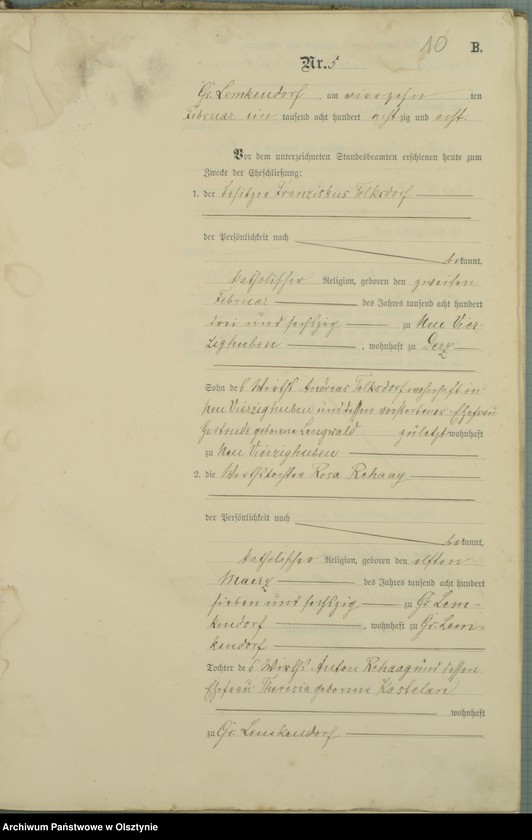 10 B.
Nr. 5
Gr. Lemkendorf am vierzehn ten
Februar ein tausend acht hundert acht zig und acht.
Vor dem unterzeichneten Standesbeamten erschienen heute zum
Zwecke der Eheschließung:
1. der Besitzer Franziskus Tolksdorf
der Persönlichkeit nach
bekannt,
katholischer Religion, geboren den zweiten
Februar des Jahres tausend acht hundert
drei und sechszig zu Neu Vier-
zighuben, wohnhaft zu Derz
Sohn des Wirths Andreas Tolksdorf wohnhaft in
Neu Vierzighuben und dessen verstorbener Ehefrau
Gertrude geborene Langwald zuletzt wohnhaft
zu Neu Vierzighuben
2. die Wirthstochter Rosa Rehaag
der Persönlichkeit nach
bekannt,
katholischer Religion, geboren den elften
Maerz des Jahres tausend acht hundert
sieben und sechszig zu Gr. Lem-
kendorf, wohnhaft zu Gr. Lem-
kendorf
Tochter des Wirths Anton Rehaag und dessen
Ehefrau Theresia geborene Kastelan
wohnhaft
zu Gr. Lemkendorf
Archiwum Państwowe w Olsztynie